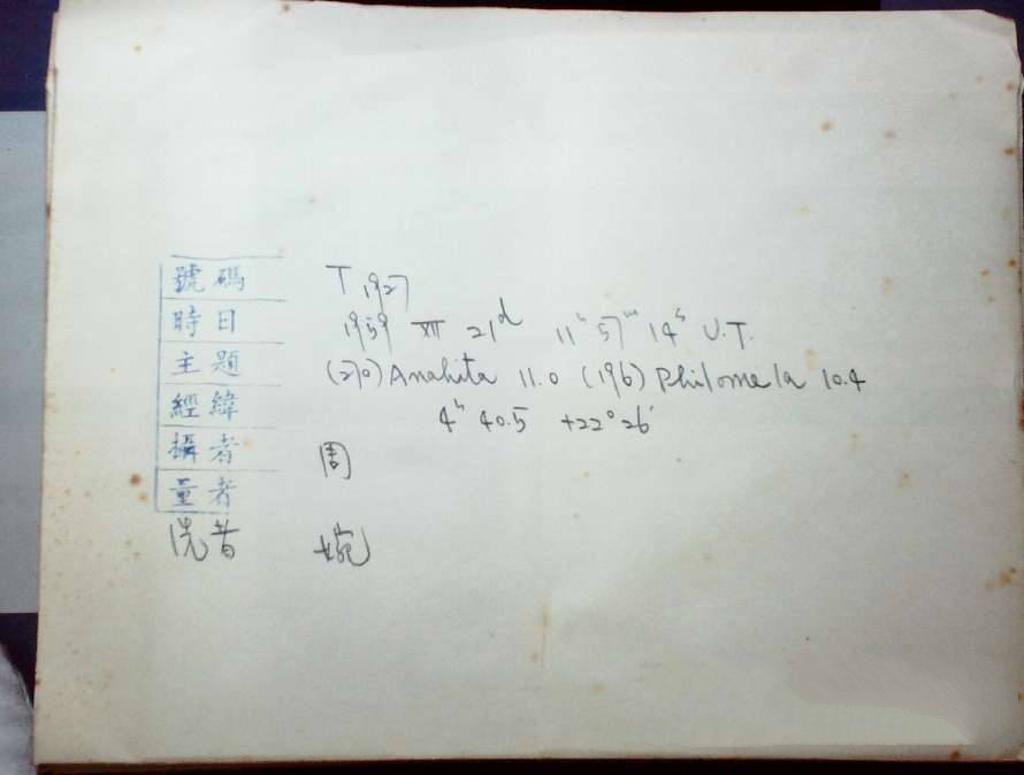 號碼 T 1927
時日 1959 XII 21ᵈ 11ʰ 57ᵐ 14ˢ U.T.
主題 (270) Anahita 11.0 (196) Philomela 10.4
經緯 4ʰ 40.5 +22° 26'
攝者 周
量者
洗者 婉